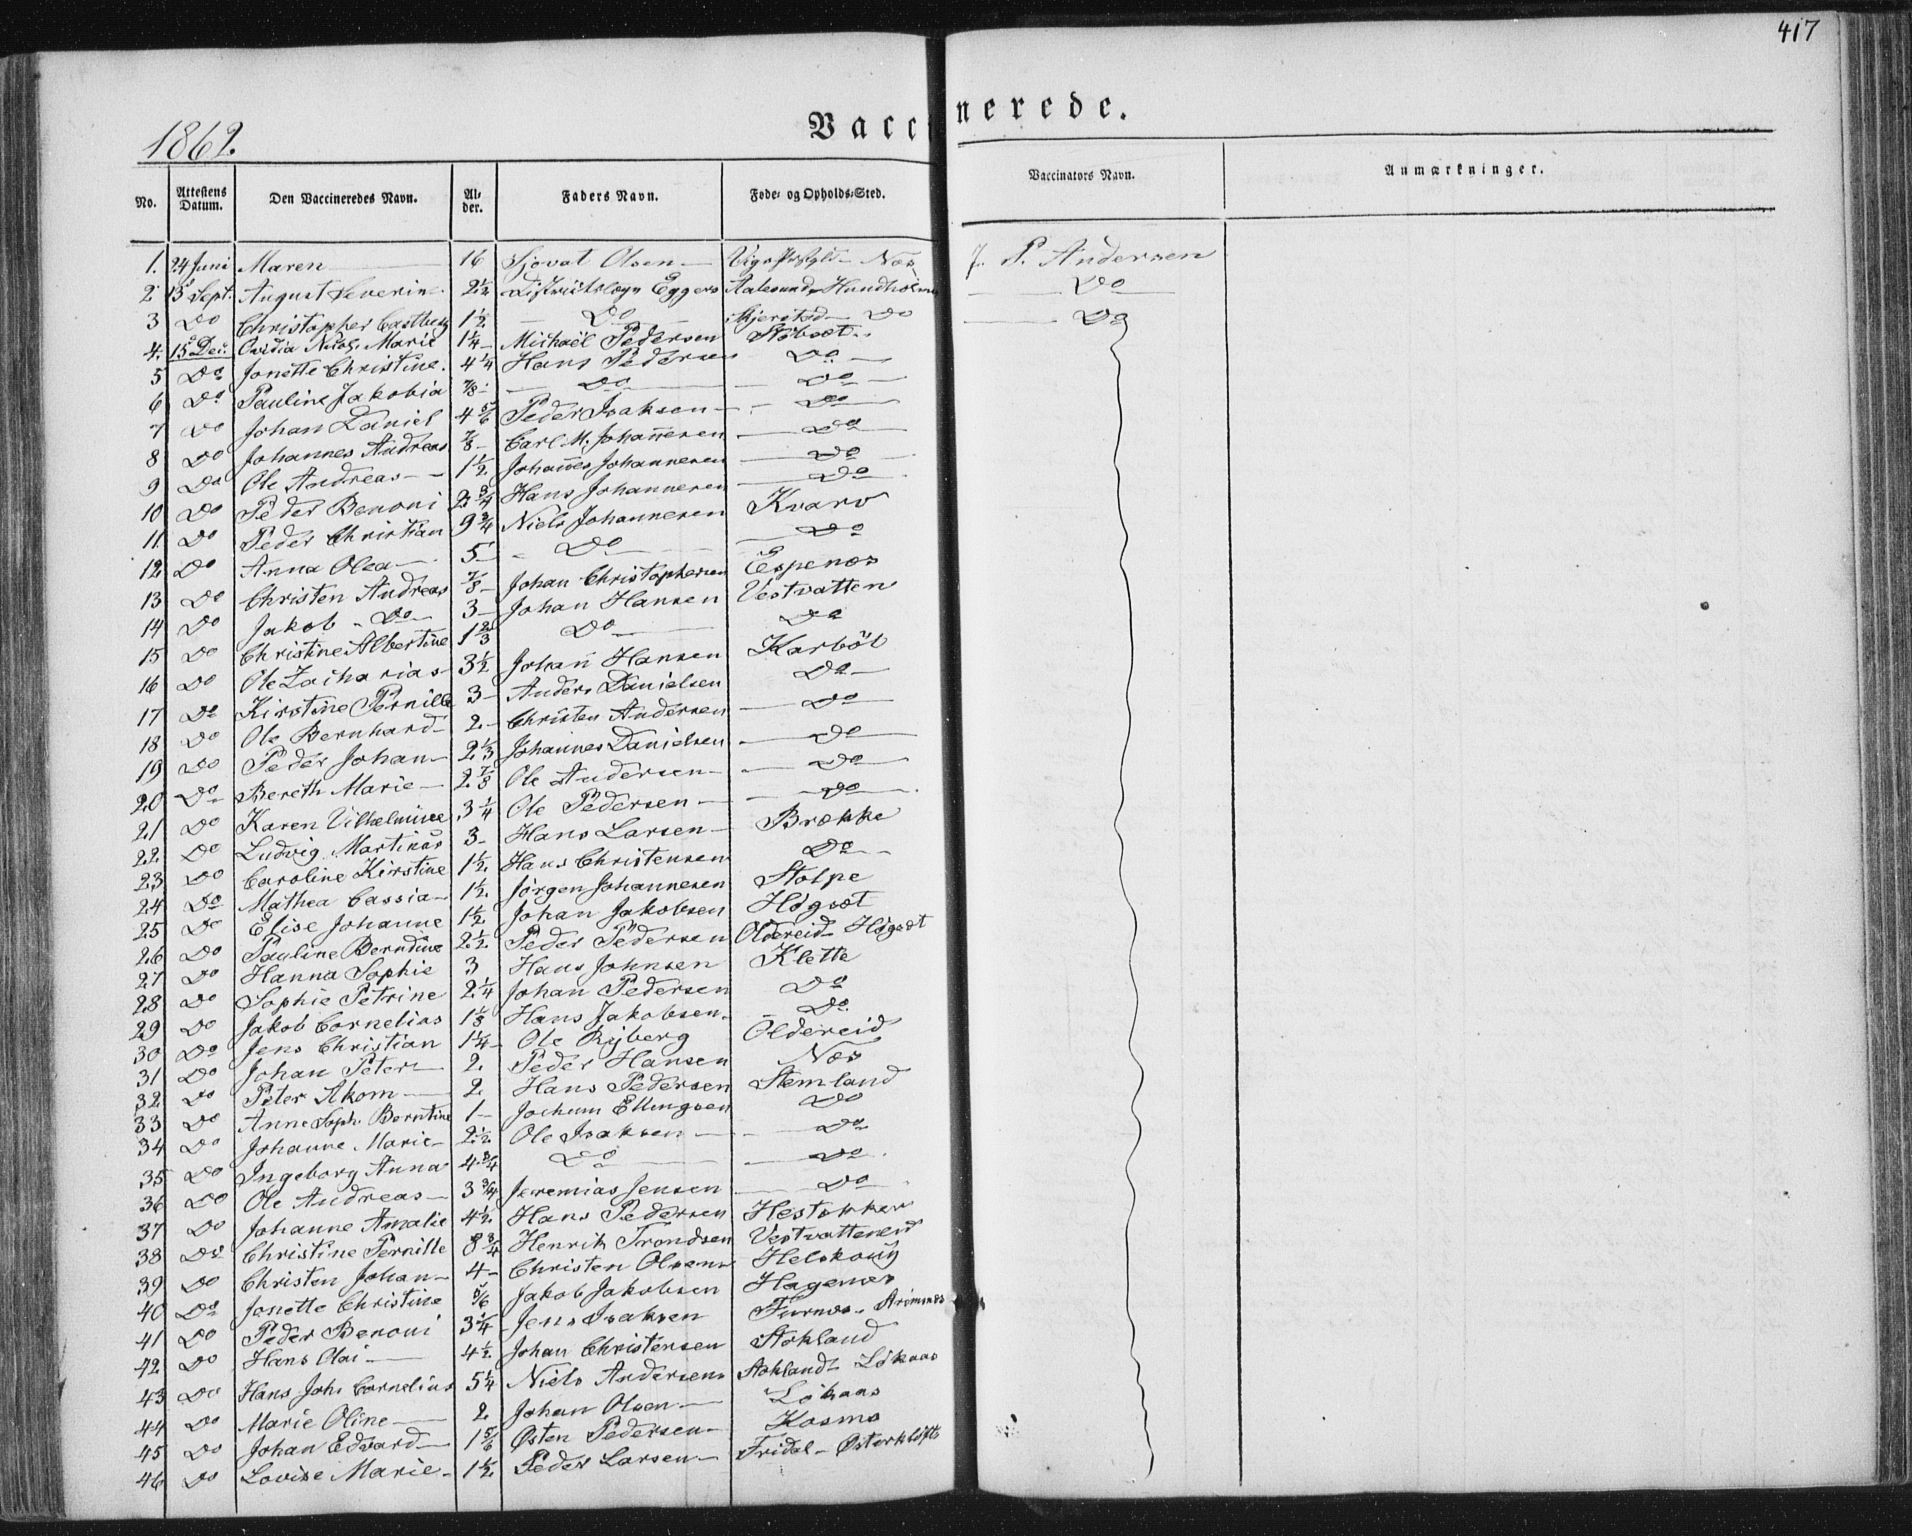 417
1862.
Vaccinerede.
No. | Attestens Datum. | Den Vaccineredes Navn. | Alder. | Faders Navn. | Føde- og Opholds-Sted. | Vaccinators Navn. | Anmærkninger.
1. 24 Juni Maren 16 Sjovat Olsen Næs J. P. Andersen
2 15 Sept. August Severin 2 1/2 Districtslæge Eggers Aalesund Hundholmen Do
3 Do Christopher Castberg 1 1/2 Do Do Do
4. 15 Dec. Ovidia Nicol. Marie 1 1/4 Michaël Pedersen Støbset
5 Do Jonette Christine 4 1/4 Hans Pedersen Do
6 Do Pauline Jakobia 7/8 Do Do
7 Do Johan Daniel 4 5/6 Peder Isaksen Do
8 Do Johannes Andreas 7/8 Carl M. Johannesen Do
9 Do Ole Andreas 1 1/2 Johannes Johannesen Do
10 Do Peder Benoni 2 3/4 Hans Johannesen Do
11 Do Peder Christian 9 3/4 Niels Johannesen Kvarv
12 Do Anna Olea 5 Do Do
13 Do Christen Andreas 7/8 Johan Christophersen Espenæs
14 Do Jakob Do 3 Johan Hansen Vestvatten
15 Do Christine Albertine 1 2/3 Do Do
16 Do Ole Zacharias 3 1/2 Johan Hansen Karbøl
17 Do Kirstine Pernille 3 Anders Danielsen Do
18 Do Ole Bernhard 2 Christen Andersen Do
19 Do Peder Johan 2 1/3 Johannes Danielsen Do
20 Do Bereth Marie 2 7/8 Ole Andersen Do
21 Do Karen Vilhelmine 3 1/4 Ole Pedersen Do
22 Do Ludvig Martinus 3 Hans Larsen Brække
23 Do Caroline Kirstine 1 1/2 Hans Christensen Do
24 Do Mathea Cassia 1 1/2 Jørgen Johannesen Stolpe
25 Do Elise Johanne 1 1/2 Johan Jakobsen Høgset
26 Do Pauline Berndine 2 1/2 Peder Pedersen Oldereid Høgset
27 Do Hanna Sophie 3 Hans Johnsen Klette
28 Do Sophie Petrine 2 1/4 Johan Pedersen Do
29 Do Jakob Cornelius 1 1/8 Hans Jakobsen Do
30 Do Jens Christian 1 1/4 Ole Rijberg Oldereid
31 Do Johan Peter 2 Peder Hansen Næs
32 Do Peter Akom 2 Hans Pedersen Stemland
33 Do Anne Soph. Berntine 1 Jochum Ellingsen Do
34 Do Johanne Marie 2 1/2 Ole Isaksen Do
35 Do Ingeborg Anna 4 3/4 Do Do
36 Do Ole Andreas 3 3/4 Jeremias Jensen Do
37 Do Johanne Amalie 4 1/2 Hans Pedersen
38 Do Christine Pernille 8 3/4 Henrik Trondsen
39 Do Christen Johan 4 Christen Olsen Helskoug
40 Do Jonette Christine 5/6 Jakob Jakobsen Hagenæs
41 Do Peder Benoni 3 1/4 Jens Isaksen Furnæs
42 Do Hans Olai 4 1/2 Johan Christensen Stokland
43 Do Hans Joh. Cornelius 5 1/4 Niels Andersen Løkaas
44 Do Marie Oline 2 Johan Olsen Løkaas
45 Do Johan Edvard 1 5/6 Østen Pedersen Kosmo
46 Do Lovise Marie 1 1/2 Peder Larsen Fridal Østerkløft